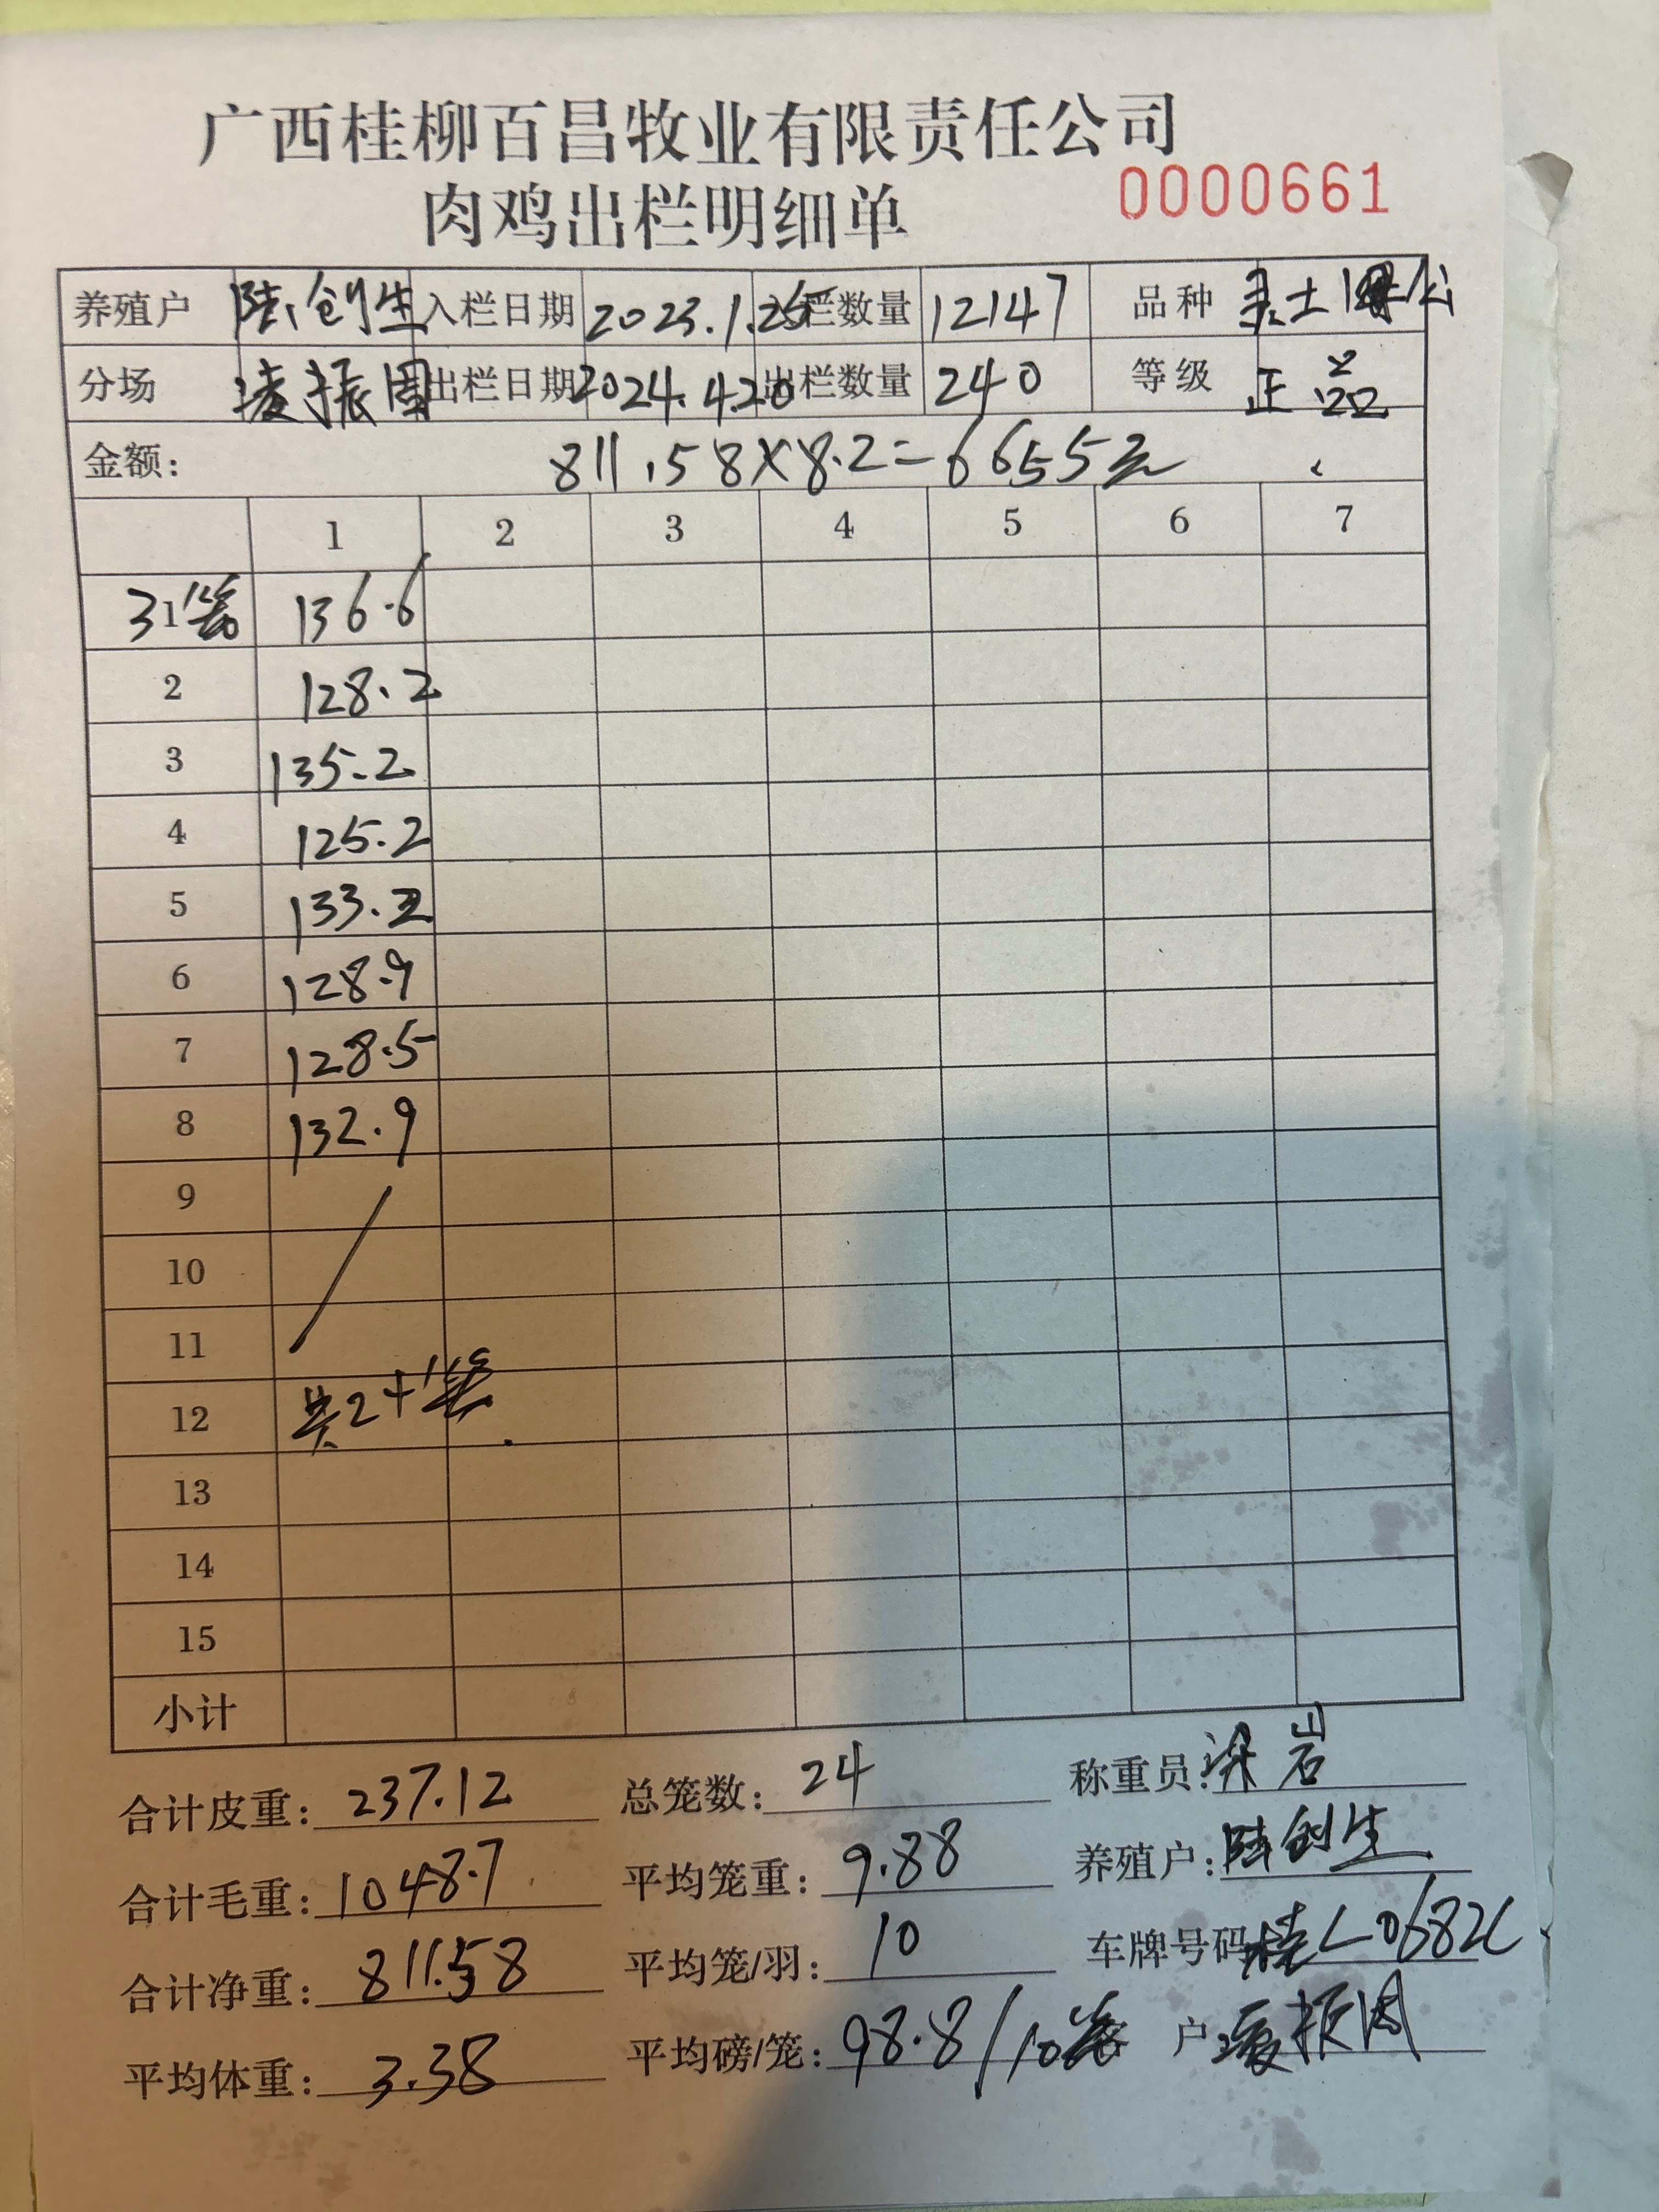 广西桂柳百昌牧业有限责任公司
肉鸡出栏明细单 0000661
养殖户 陆创生 入栏日期 2023.1.25 入栏数量 12147 品种 灵土
分场 凌振周 出栏日期 2024.4.20 出栏数量 240 等级 正品
金额: 811.58×8.2=6655元
1 2 3 4 5 6 7
31笼 136.6
2 128.2
3 135.2
4 125.2
5 133.2
6 128.9
7 128.5
8 132.9
9
10
11
12 共24笼
13
14
15
小计
合计皮重: 237.12 总笼数: 24 称重员: 岩
合计毛重: 1048.7 平均笼重: 9.88 养殖户: 陆创生
合计净重: 811.58 平均笼/羽: 10 车牌号码 桂L0682C
平均体重: 3.38 平均磅/笼: 98.8/10笼 户 凌振周